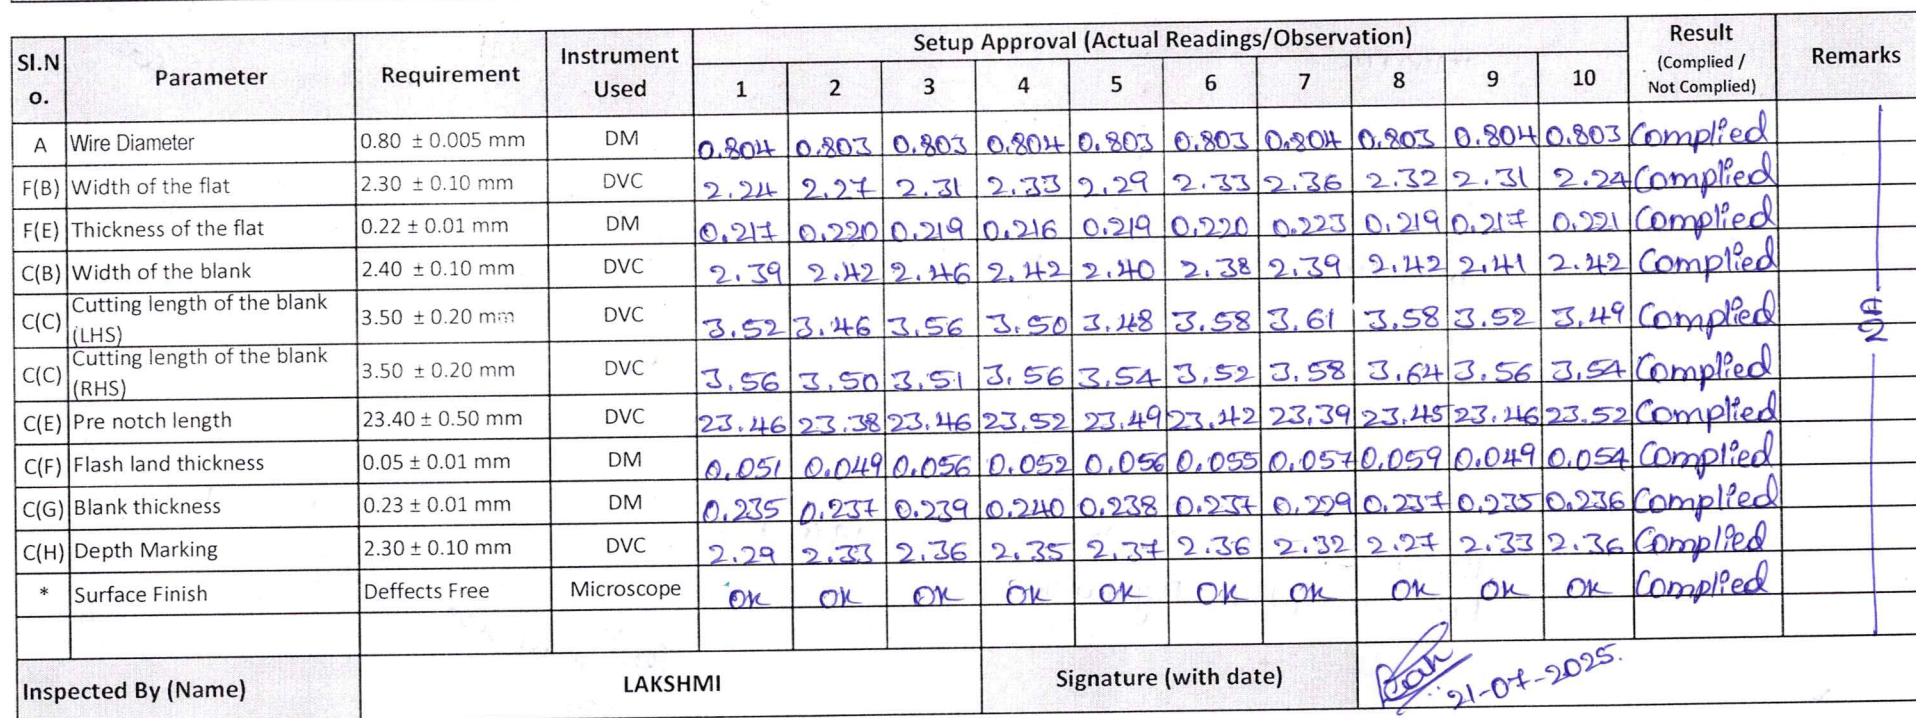 Sl.No. Parameter Requirement Instrument Used Setup Approval (Actual Readings/Observation) Result (Complied / Not Complied) Remarks
1 2 3 4 5 6 7 8 9 10
A Wire Diameter 0.80 ± 0.005 mm DM 0.804 0.803 0.803 0.804 0.803 0.803 0.804 0.803 0.804 0.803 Complied
F(B) Width of the flat 2.30 ± 0.10 mm DVC 2.24 2.27 2.31 2.33 2.29 2.33 2.36 2.32 2.31 2.24 Complied
F(E) Thickness of the flat 0.22 ± 0.01 mm DM 0.217 0.220 0.219 0.216 0.219 0.220 0.223 0.219 0.217 0.221 Complied
C(B) Width of the blank 2.40 ± 0.10 mm DVC 2.39 2.42 2.46 2.42 2.40 2.38 2.39 2.42 2.41 2.42 Complied
C(C) Cutting length of the blank (LHS) 3.50 ± 0.20 mm DVC 3.52 3.46 3.56 3.50 3.48 3.58 3.61 3.58 3.52 3.49 Complied
C(C) Cutting length of the blank (RHS) 3.50 ± 0.20 mm DVC 3.56 3.50 3.51 3.56 3.54 3.52 3.58 3.64 3.56 3.54 Complied
C(E) Pre notch length 23.40 ± 0.50 mm DVC 23.46 23.38 23.46 23.52 23.49 23.42 23.39 23.45 23.46 23.52 Complied
C(F) Flash land thickness 0.05 ± 0.01 mm DM 0.051 0.049 0.056 0.052 0.056 0.055 0.057 0.059 0.049 0.054 Complied
C(G) Blank thickness 0.23 ± 0.01 mm DM 0.235 0.237 0.239 0.240 0.238 0.237 0.229 0.237 0.235 0.236 Complied
C(H) Depth Marking 2.30 ± 0.10 mm DVC 2.29 2.33 2.36 2.35 2.37 2.36 2.32 2.27 2.33 2.36 Complied
* Surface Finish Deffects Free Microscope OK OK OK OK OK OK OK OK OK OK Complied
Inspected By (Name) LAKSHMI Signature (with date) 21-07-2025.